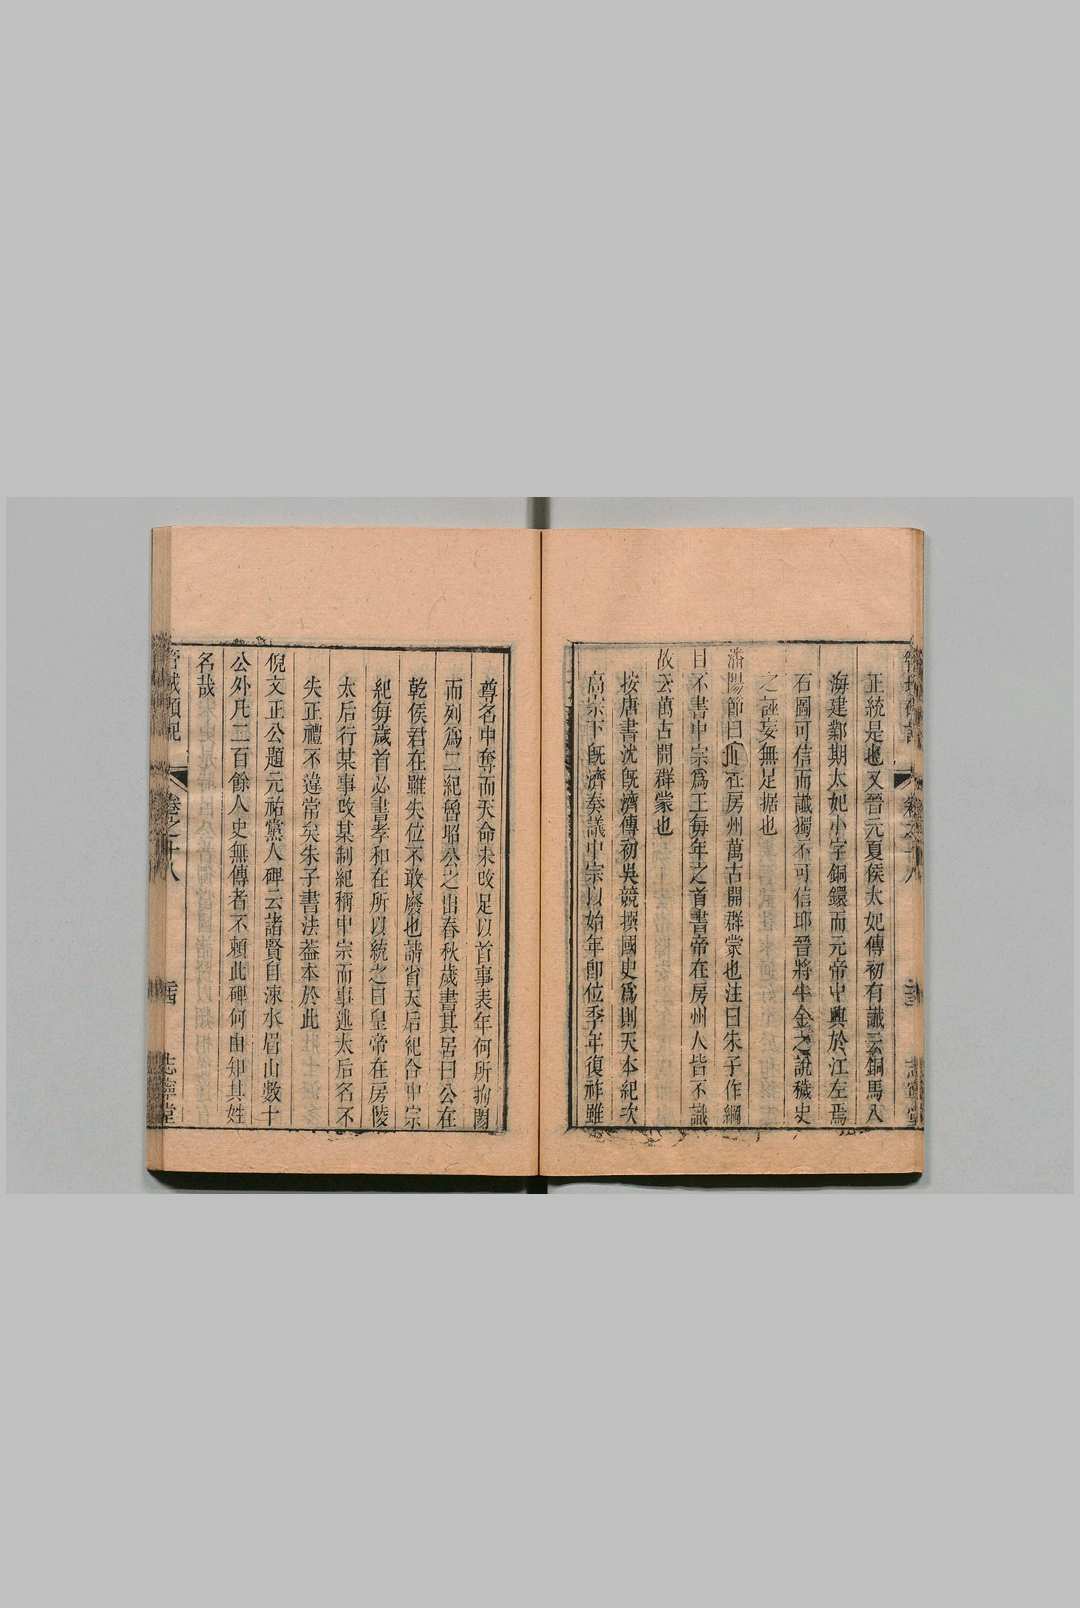 正統是也又晉元夏侯太妃傳初有讖云銅馬入
海建鄴期太妃小字銅鐶而元帝中興於江左焉
石圖可信而讖獨不可信耶晉將牛金之說穢史
之誣妄無足据也
潘陽節曰 在房州萬古開群蒙也注曰朱子作綱
目不書中宗爲王每年之首書帝在房州人皆不識
故云萬古開群蒙也
按唐書沈旣濟傳初吳競撰國史爲則天本紀次
高宗下旣濟奏議中宗以始年卽位季年復祚雖
尊名中奪而天命未改足以首事表年何所拘閡
而列爲二紀魯昭公之出春秋歲書其居曰公在
乾侯君在雖失位不敢廢也請省天后紀合中宗
紀每歲首必書孝和在所以統之曰皇帝在房陵
太后行某事改某制紀稱中宗而事述太后名不
失正禮不違常矣朱子書法葢本於此
倪文正公題元祐黨人碑云諸賢自涑水眉山數十
公外凡二百餘人史無傳者不賴此碑何由知其姓
名哉
管城碩記
卷之十八
志寧堂